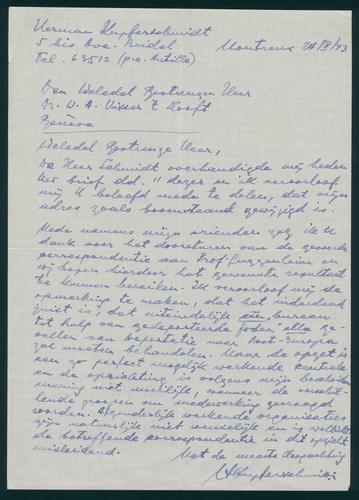 Herman Kupferschmidt
5 bis Ave. Bridel Montreux 24/IX/43
Tel. 63512 (p.a.
Den Weledel Gestrengen Heer
Dr. W. A. Visser 't Hooft
Genève
Weledel Gestrenge Heer,
De Heer Schmidt overhandigde mij heden
Uw brief dd. dezer en ik veroorloof
mij U beleefd mede te delen, dat mijn
adres zoals bovenstaand gewijzigd is.
Mede namens mijn vrienden zeg ik U
dank voor het doorsturen van de gevoerde
correspondentie aan Prof. Guggenheim en
wij hopen hierdoor het gewenste resultaat
te kunnen bereiken. Ik veroorloof mij de
opmerking te maken, dat het inderdaad
juist is, dat uiteindelijk één bureau
tot hulp van gedeporteerde Joden alle ge-
vallen van deportatie naar Oost-Europa
zal moeten behandelen. Maar de opzet is
een zo perfect mogelijk werkende centrale
en de oprichting is volgens mijn bescheiden
mening niet moeilijk, wanneer de verschil-
lende groepen om medewerking gevraagd
worden. Afzonderlijk werkende organisaties
zijn natuurlijk niet wenselijk en is wellicht
de betreffende correspondentie in dit opzicht
misleidend.
Met de meeste Hoogachting
HKupferschmidt